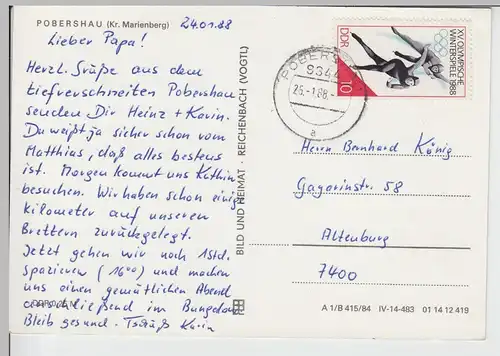 POBERSHAU (Kr. Marienberg)
24.01.88
Lieber Papa!
Herzl. Grüße aus dem
tiefverschneiten Pobershau
senden Dir Heinz + Karin.
Du weißt ja sicher schon vom
Matthias, daß alles bestens
ist. Morgen kommt uns Kathrin
besuchen. Wir haben schon einige
Kilometer auf unseren
Brettern zurückgelegt.
Jetzt gehen wir noch 1 Std.
spazieren (16⁰⁰) und machen
uns einen gemütlichen Abend
anschließend im Bungalow
Bleib gesund. Tschüß Karin
BILD UND HEIMAT · REICHENBACH (VOGTL)
POBERS
934
25.-1.88.
a
DDR
10
XV. OLYMPISCHE
WINTERSPIELE 1988
Herrn Bernhard König
Gagarinstr. 58
Altenburg
7400
A 1/B 415/84 IV-14-483 01 14 12 419